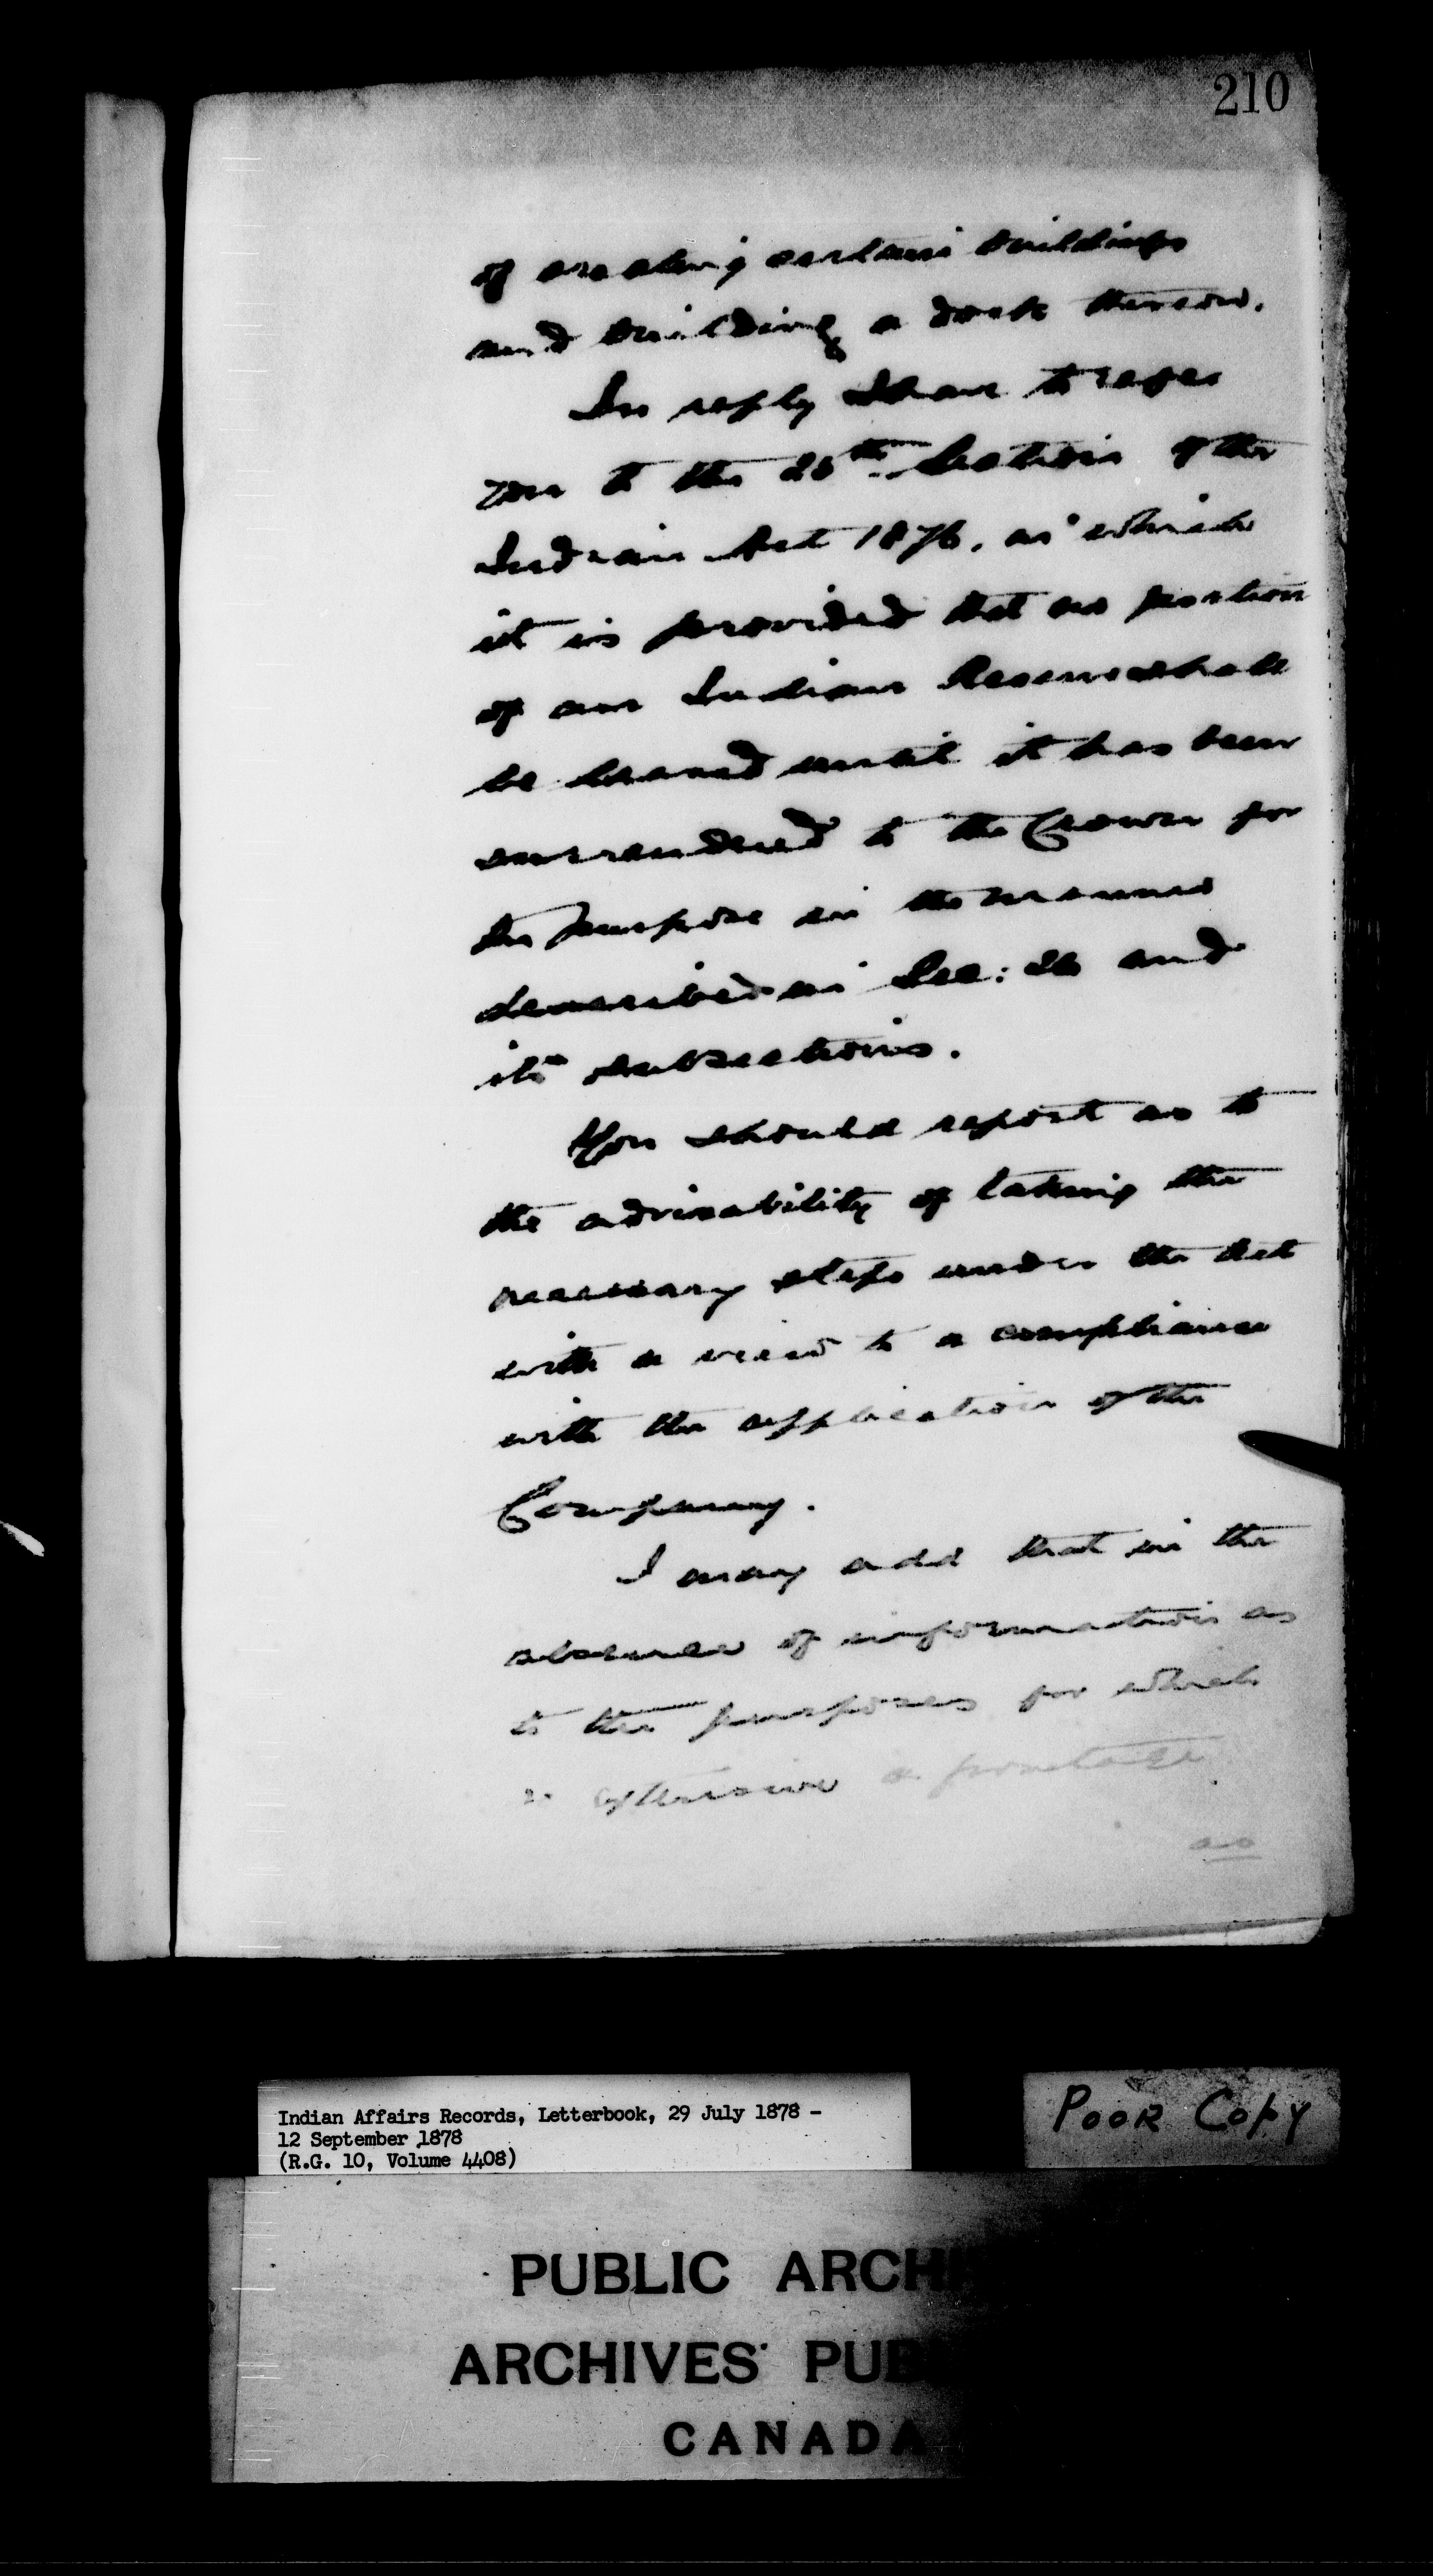 210
of erecting certain buildings
and building a dock thereon.
In reply I have to refer
you to the 25th Section of the
Indian Act 1876, in which
it is provided that no portion
of an Indian Reserve shall
be leased until it has been
surrendered to the Crown for
the purpose in the manner
described in Sec: 26 and
its subsections.
You should report as to
the advisability of taking the
necessary steps under the Act
with a view to a compliance
with the application of the
Company.
I may add that in the
absence of information as
to the purposes for which
extensive a frontage
as
Indian Affairs Records, Letterbook, 29 July 1878 -
12 September 1878
(R.G. 10, Volume 4408)
POOR COPY
PUBLIC ARCHI
ARCHIVES PUB
CANADA